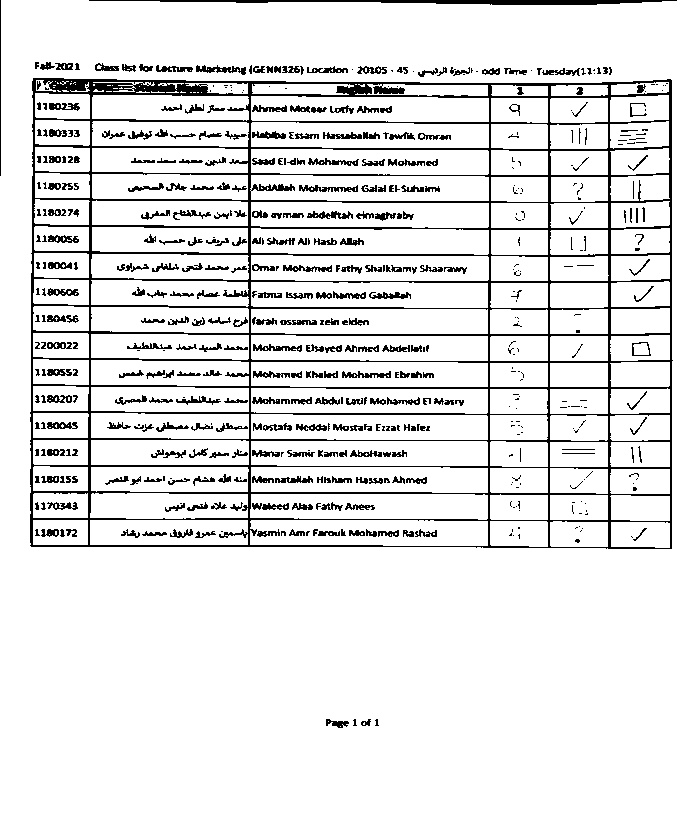 Fall-2021 Class list for Lecture Marketing (GENN326) Location : 20105 - 45 - الجيزة الرئيسي - odd Time : Tuesday(11:13)
English Name 1 2 3
1180236 احمد معتز لطفى احمد Ahmed Motaar Lotfy Ahmed 9 ✓ □
1180333 حبيبة عصام حسب الله توفيق عمران Habiba Essam Hassaballah Tawfik Omran 4 |||
1180128 سعد الدين محمد سعد محمد Saad El-din Mohamed Saad Mohamed 5 ✓ ✓
1180255 عبد الله محمد جلال السحيمي AbdAllah Mohammed Galal El-Suhaimi 6 ? ||
1180274 علا ايمن عبدالفتاح المغربى Ola ayman abdelftah elmaghraby 0 ✓ ||||
1180056 على شريف على حسب الله Ali Sharif Ali Hasb Allah 1 □ ?
1180041 عمر محمد فتحى شلقامى شعراوى Omar Mohamed Fathy Shalkkamy Shaarawy 6 — ✓
1180606 فاطمة عصام محمد جاب الله Fatma Issam Mohamed Gaballah ✓
1180456 فرح اسامه زين الدين محمد farah ossama zein elden 2
2200022 محمد السيد احمد عبداللطيف Mohamed Elsayed Ahmed Abdellatif 6 ✓ □
1180552 محمد خالد محمد ابراهيم خميس Mohamed Khaled Mohamed Ebrahim 5
1180207 محمد عبداللطيف محمد المصرى Mohammed Abdul Latif Mohamed El Masry ✓
1180045 مصطفى نضال مصطفى عزت حافظ Mostafa Neddal Mostafa Ezzat Hafez 3 ✓ ✓
1180212 منار سمير كامل ابوهواش Manar Samir Kamel AboHawash = ||
1180155 منه الله هشام حسن احمد ابو النصر Mennatallah Hisham Hassan Ahmed 8 ✓ ?
1170343 وليد علاء فتحى انيس Waleed Alaa Fathy Anees 9 □
1180172 ياسمين عمرو فاروق محمد رشاد Yasmin Amr Farouk Mohamed Rashad 4 ? ✓
Page 1 of 1